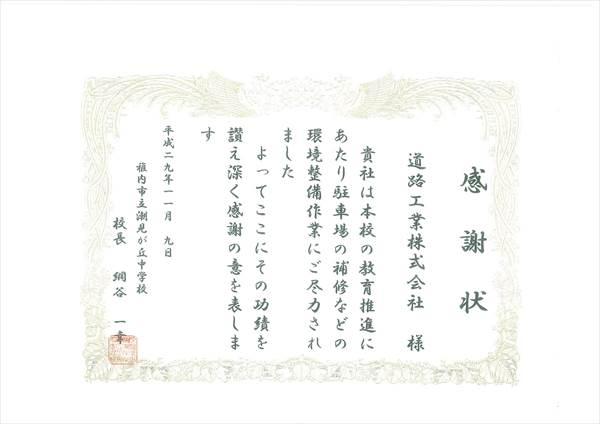 感謝状
道路工業株式会社 様
貴社は本校の教育推進に
あたり駐車場の補修などの
環境整備作業にご尽力され
ました
よってここにその功績を
讃え深く感謝の意を表しま
す
平成二九年一一月 九日
稚内市立潮見が丘中学校
校長 網谷 一幸